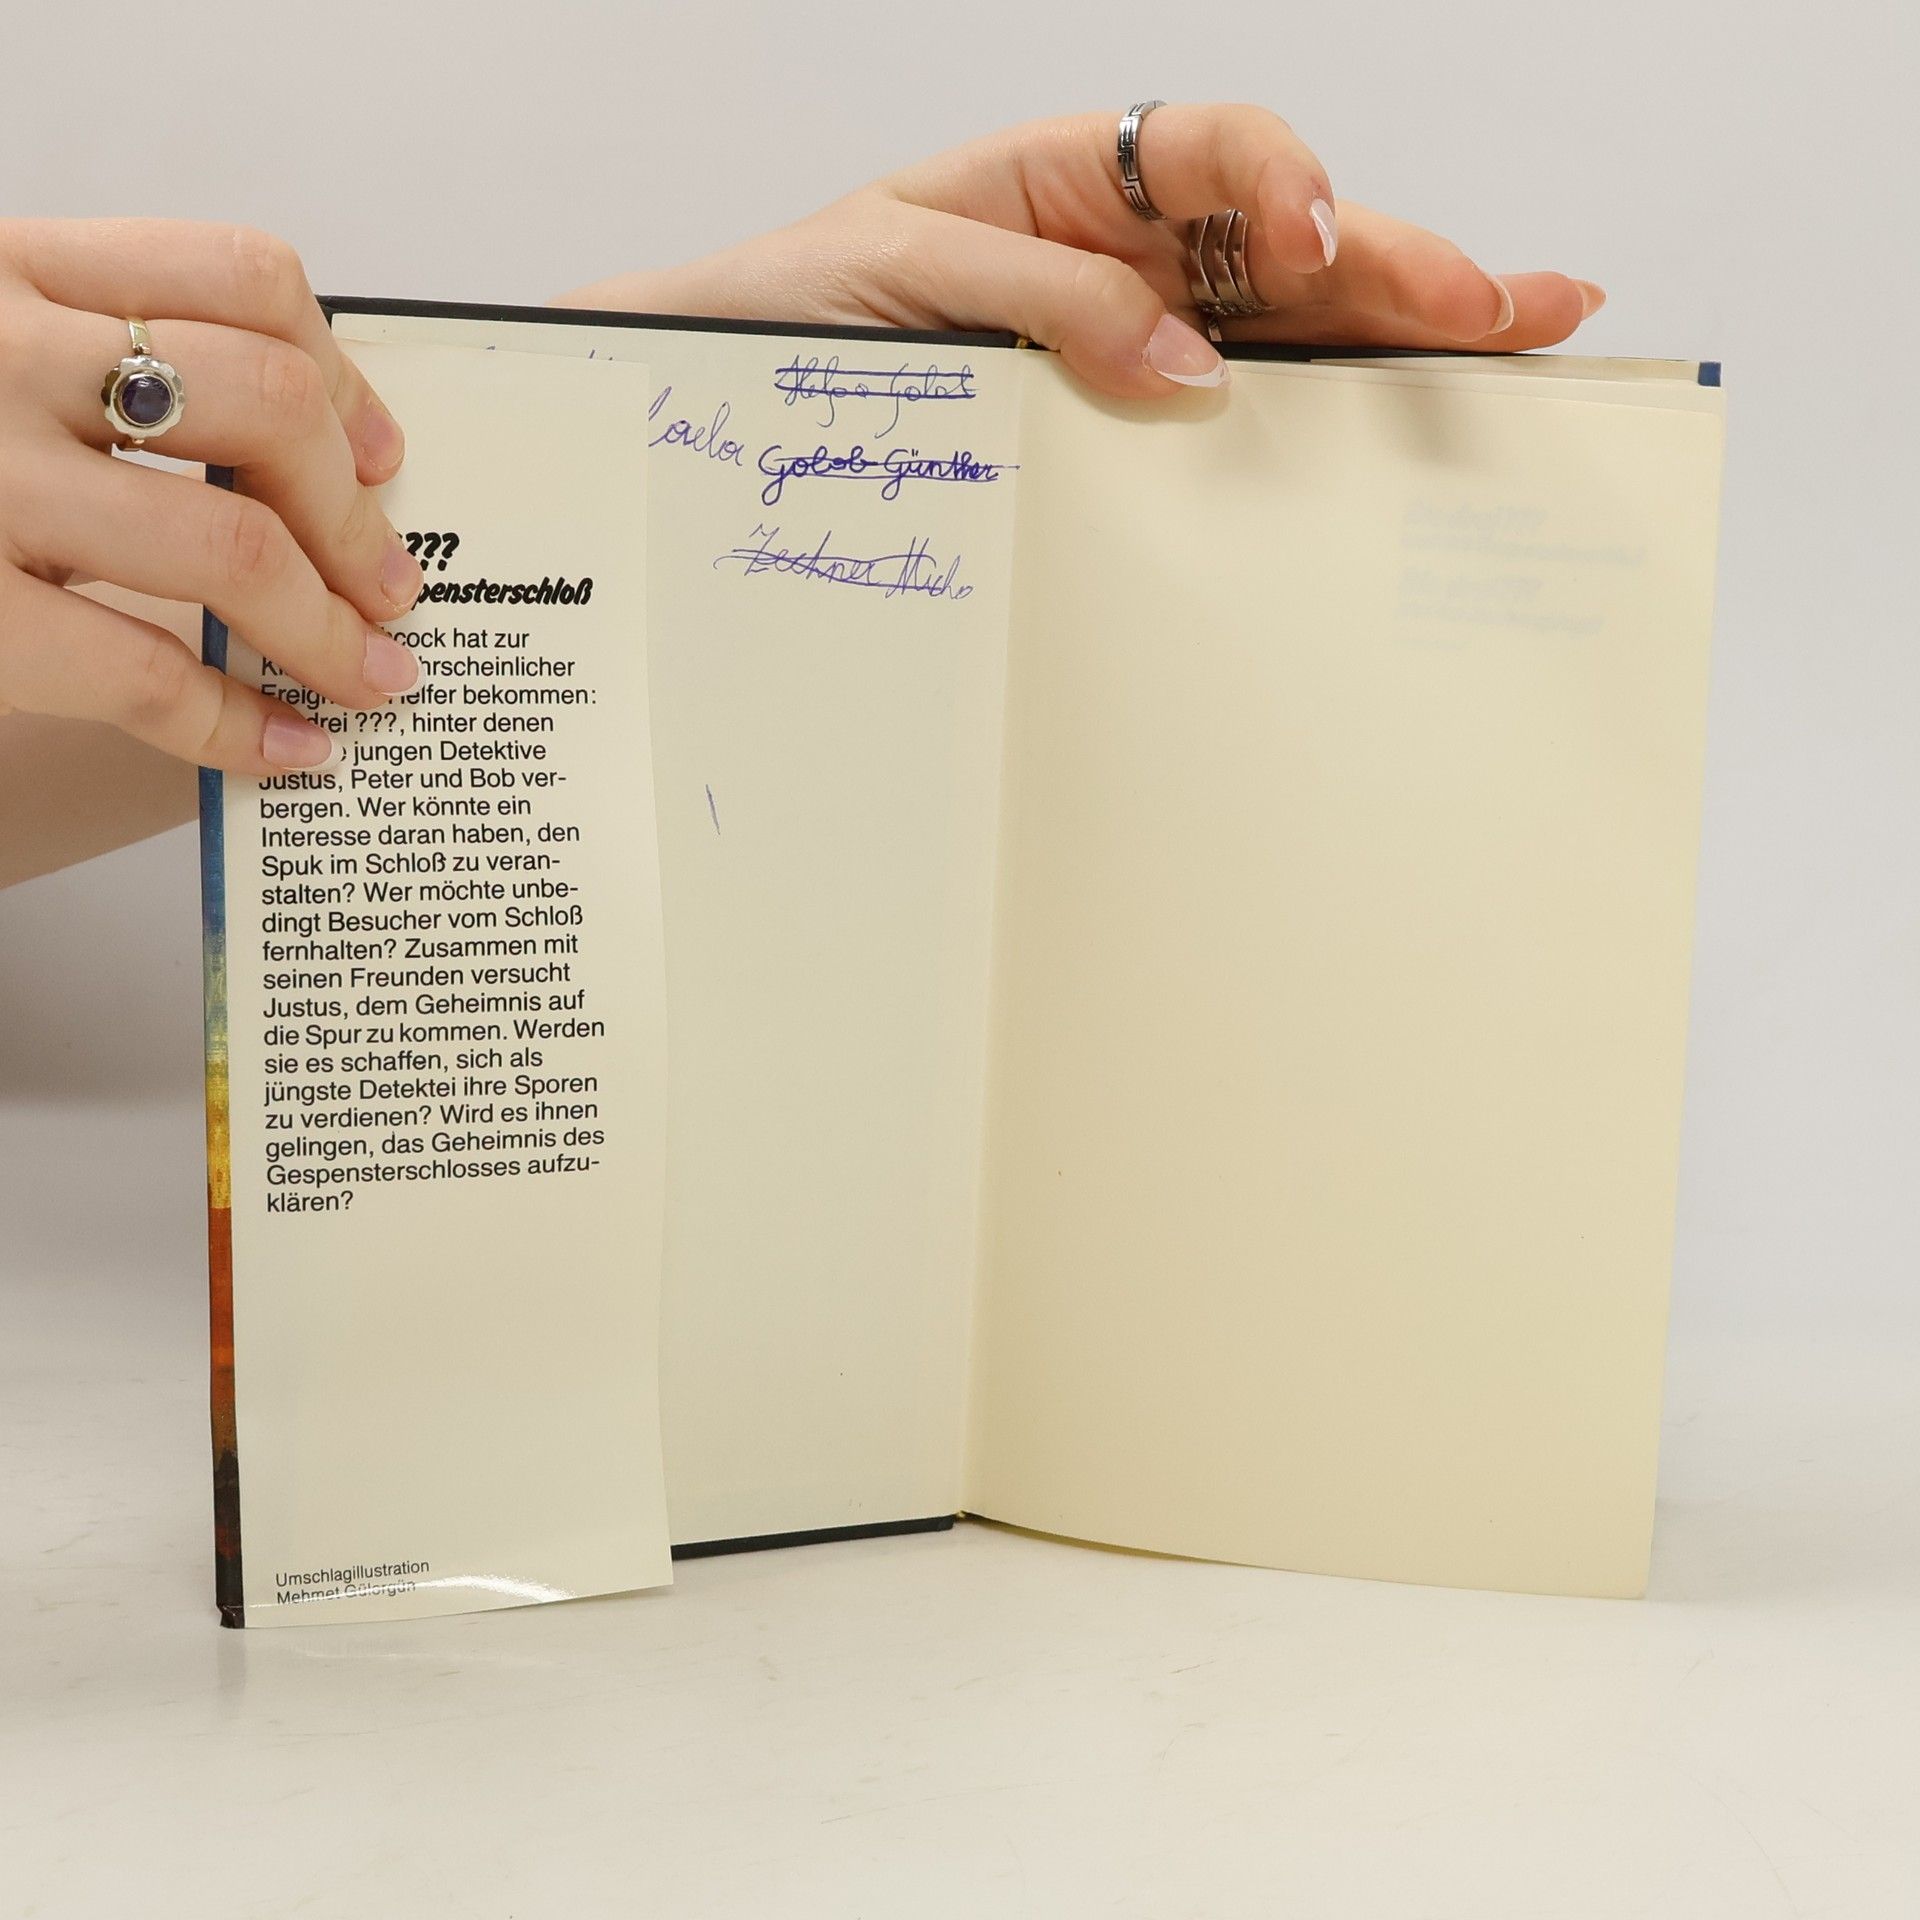 ???
pensterschloß
cock hat zur
hrscheinlicher
elfer bekommen:
drei ???, hinter denen
jungen Detektive
Justus, Peter und Bob ver-
bergen. Wer könnte ein
Interesse daran haben, den
Spuk im Schloß zu veran-
stalten? Wer möchte unbe-
dingt Besucher vom Schloß
fernhalten? Zusammen mit
seinen Freunden versucht
Justus, dem Geheimnis auf
die Spur zu kommen. Werden
sie es schaffen, sich als
jüngste Detektei ihre Sporen
zu verdienen? Wird es ihnen
gelingen, das Geheimnis des
Gespensterschlosses aufzu-
klären?
Umschlagillustration
Mehmet Gülergün
Golob
Golob Günther
Zechner Micha